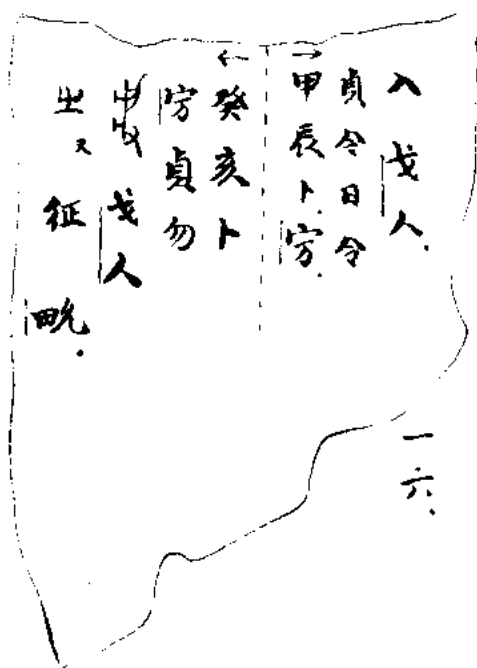 甲辰卜㝉
貞今日令
入戈人
癸亥卜
㝉貞勿
戈人
㞢又征
㽙
一六